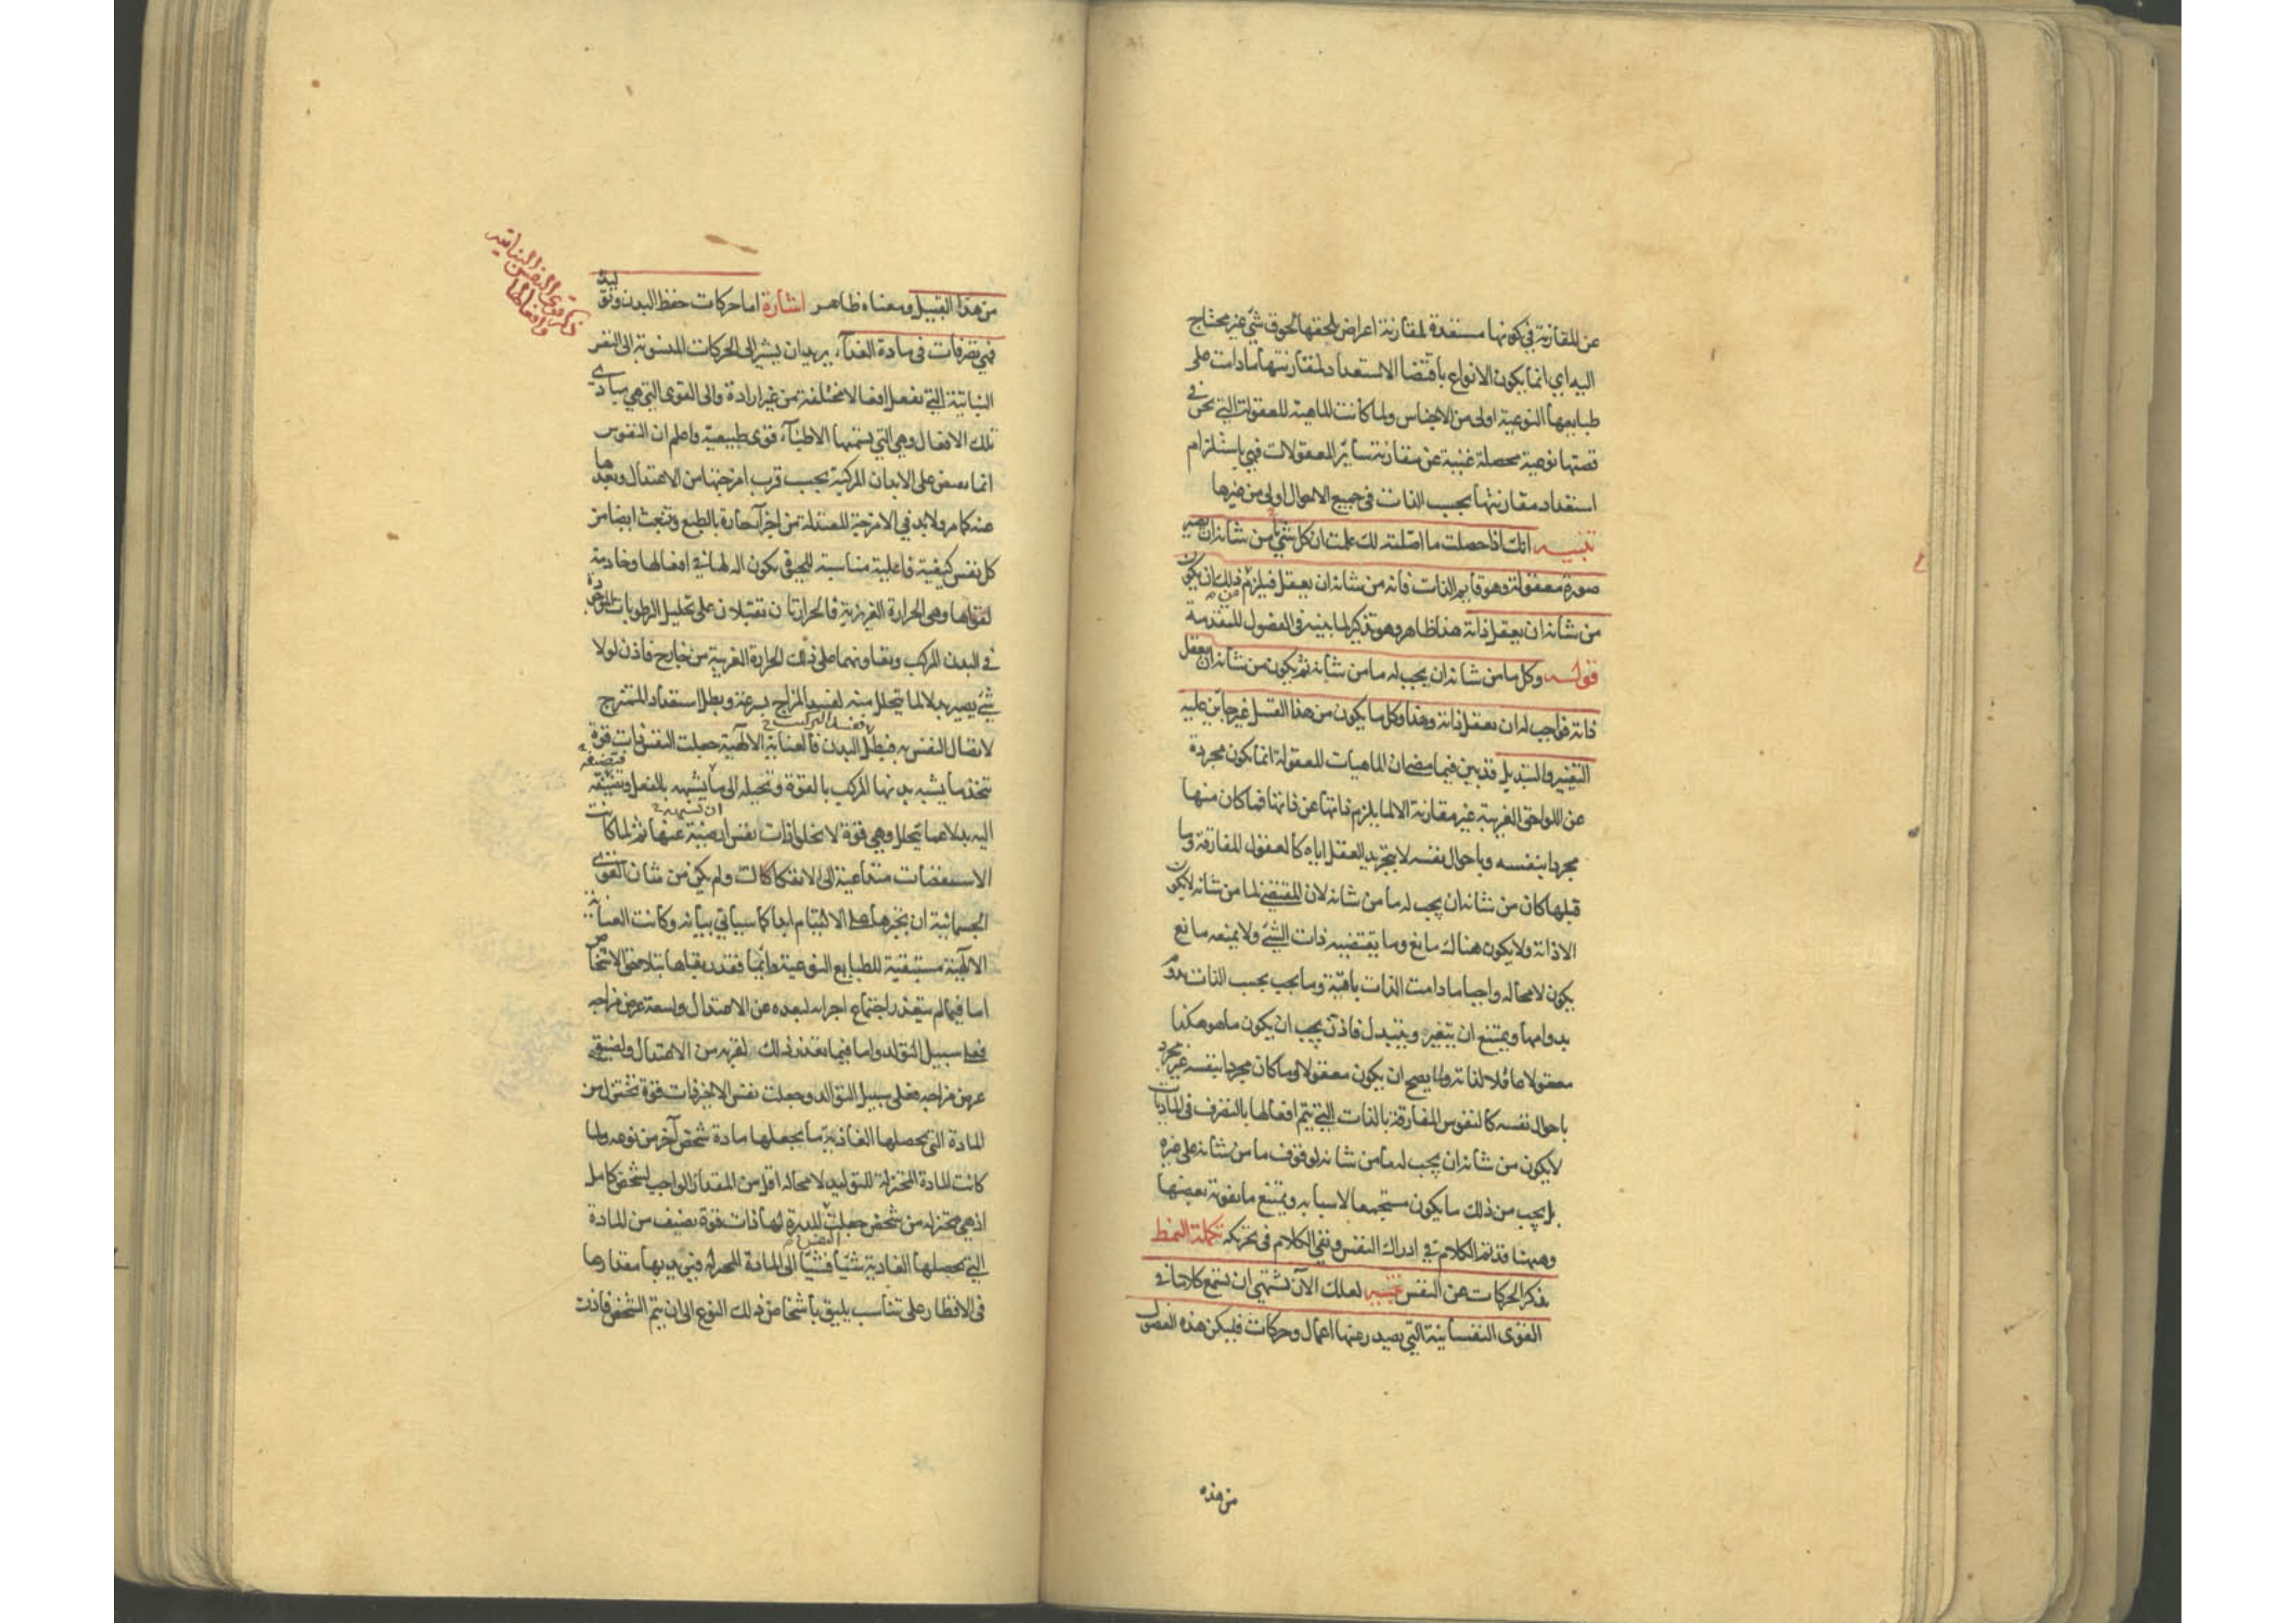 عن المقارنة في كونها مستعدة لمقارنة اعراض تلحقها لحوق شئ غير محتاج
اليه اي انما يكون الانواع باقتضا الاستعداد لمقارنتها مادامت على
طبايعها النوعية اولى من الاجناس ولما كانت الماهية المعقولة التي نحن في
قصتها نوعية محصلة غنية عن مقارنة ساير المعقولات فهي باستلزام
استعداد مقارنتها بحسب الذات في جميع الاحوال اولى من غيرها
تنبيه انك اذا حصلت ما اصلته لك علمت ان كل شئ ما من شانه ان يصير
صورة معقولة وهو قايم الذات فانه من شانه ان يعقل فيلزم من ذلك ان يكون
من شانه ان يعقل ذاته هذا ظاهر وهو تذكير لما بينه في الفصول المتقدمة
قوله وكل ما من شانه ان يجب له ما من شانه ثم يكون من شانه ان يعقل
ذاته فواجب له ان يعقل ذاته وهذا وكل ما يكون من هذا القبيل غير جائز عليه
التغيير والتبديل قد بين فيما مضى ان الماهيات المعقولة انما يكون مجردة
عن اللواحق الغريبة غير مقارنة الا لما يلزم ذاتها عن ذاتها فما كان منها
مجردا بنفسه وباحوال نفسه لا بتجريد العقل اياه كالعقول المفارقة وما
قبلها كان من شانه ان يجب له ما من شانه لان المقتضي لما من شانه لا يكون
الا ذاته ولا يكون هناك مانع وما يقتضيه ذات الشئ ولا يمنعه مانع
يكون لا محالة واجبا مادامت الذات باقية وما يجب بحسب الذات يدوم
بدوامها ويمتنع ان يتغير ويتبدل فاذن يجب ان يكون ما هو هكذا
معقولا عاقلا لذاته ولما يصح ان يكون معقولا وما كان مجردا بنفسه غير مجرد
باحوال نفسه كالنفوس المفارقة بالذات التي يتم افعالها بالتصرف في الماديات
لا يكون من شانه ان يجب له ما من شانه لوقوف ما من شانه على غيره
بل يجب من ذلك ما يكون مستجمعا لاسبابه ويمتنع ما يفوته بعضها
وههنا قد تم الكلام في ادراك النفس وبقي الكلام في تحريكه تكملة النمط
بذكر الحركات عن النفس تنبيه لعلك الآن تشتهي ان تسمع كلاما في
القوى النفسانية التي يصدر عنها اعمال وحركات فليكن هذه الفصول
من هذه
من هذا القبيل ومعناه ظاهر اشارة اما حركات حفظ البدن وتوليده
فهي تصرفات في مادة الغذآء يريد ان يشير الى الحركات المنسوبة الى النفس
النباتية التي تفعل افعالا مختلفة من غير ارادة والى القوى التي هي مبادي
تلك الافعال وهي التي يسميها الاطبآء قوى طبيعية واعلم ان النفوس
انما تفيض على الابدان المركبة بحسب قرب امزجتها من الاعتدال وبعدها
عنه كما مر ولا بد في الامزجة المعتدلة من اجزآء حارة بالطبع وتنبعث ايضا من
كل نفس كيفية فاعلية مناسبة للحيوة يكون الة لها في افعالها وخادمة
لقواها وهي الحرارة الغريزية فالحرارتان تقبلان على تحليل الرطوبات الموجودة
في البدن المركب ويعاونهما على ذلك الحرارة الغريبة من خارج فاذن لولا
شئ يصير بدلا لما يتحلل منه لفسد المزاج بسرعة وبطل استعداد الممتزج
لاتصال النفس به فبطل البدن فالعناية الالهية جعلت النفس ذات قوة
تتخذ ما يشبه بدنها المركب بالقوة وتحيله الى ما يشبهه بالفعل وتضيفه
اليه بدلا عما يتحلل وهي قوة لا تخلو ذات نفس ارضية عنها ثم لما كانت
الاسطقسات متداعية الى الانفكاك ولم يكن من شان القوى
الجسمانية ان تجبرها على الالتيام ابدا كما سياتي بيانه وكانت العناية
الالهية مستبقية للطبايع النوعية دائما فقدر بقاها بتلاحق الاشخاص
اما فيما لم يتعذر اجتماع اجزائه لبعده عن الاعتدال ولسعة عرض مزاجه
فعلى سبيل التولد واما فيما تعذر ذلك لقربه من الاعتدال ولضيق
عرض مزاجه فعلى سبيل التوالد وجعلت نفس ذات قوة تختزل من
المادة التي يحصلها الغاذية ما يجعلها مادة شخص آخر من نوعه ولما
كانت المادة المختزلة للتوليد لا محالة اقل من المقدار الواجب لشخص كامل
اذ هي مختزلة من شخص جعلت المدبرة لها ذات قوة تضيف من المادة
التي يحصلها الغاذية شيئا فشيئا الى المادة المختزلة فيزيد بها مقدارها
في الاقطار على تناسب يليق باشخاص ذلك النوع الى ان يتم الشخص فاذن
ذكر قوى النفس النباتية
وافعالها